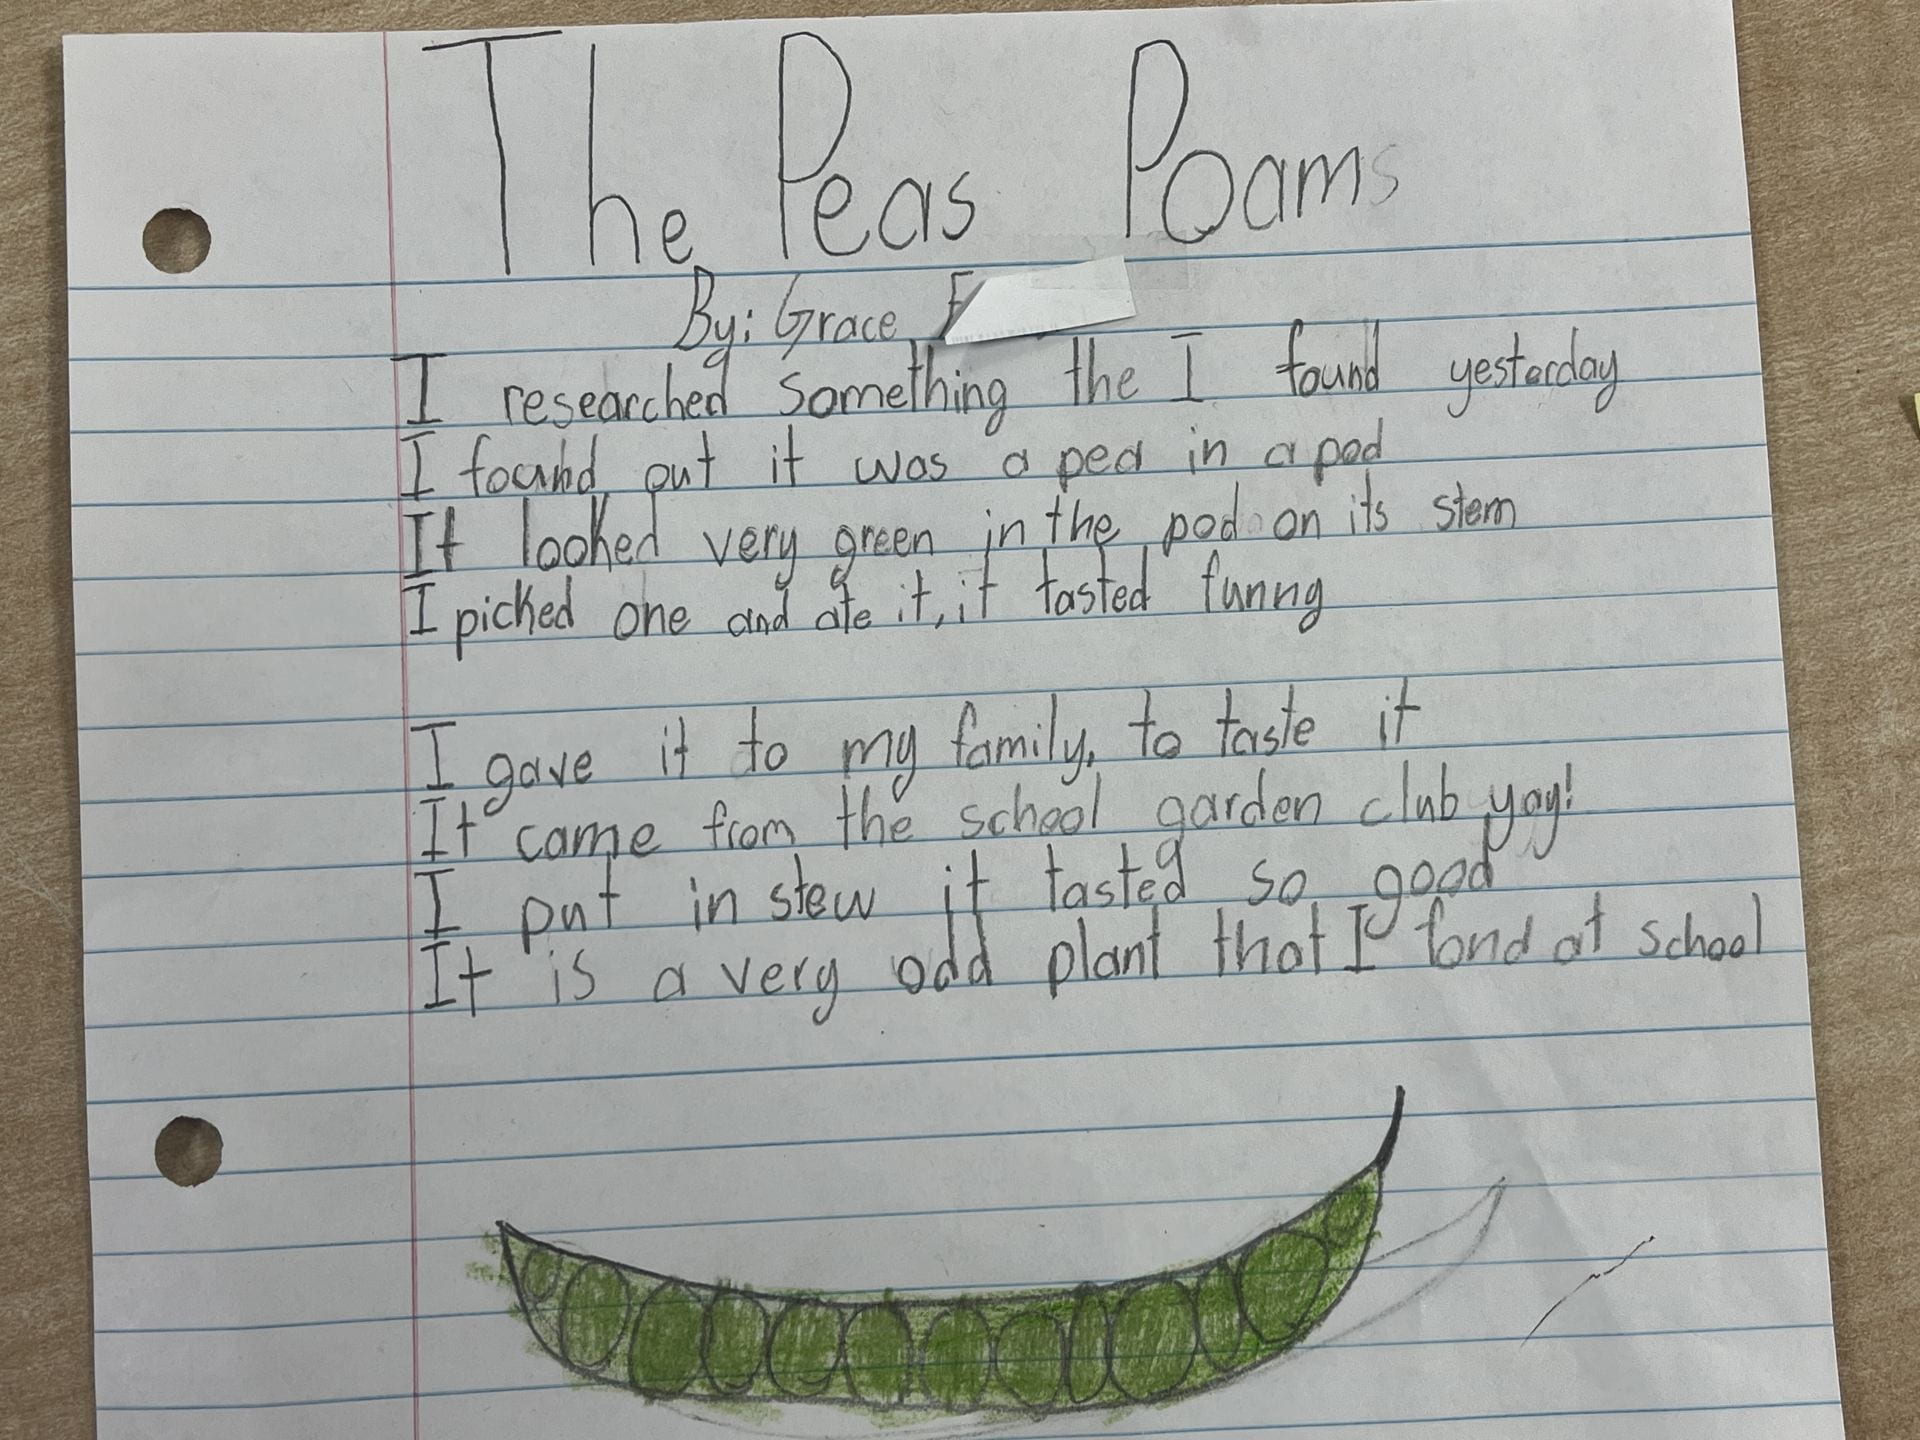 The Peas Poams
By: Grace F
I researched something the I found yesterday
I found out it was a pea in a pod
It looked very green in the pod on its stem
I picked one and ate it, it tasted funny
I gave it to my family, to taste it
It came from the school garden club yay!
I put in stew it tasted so good
It is a very odd plant that I fond at school